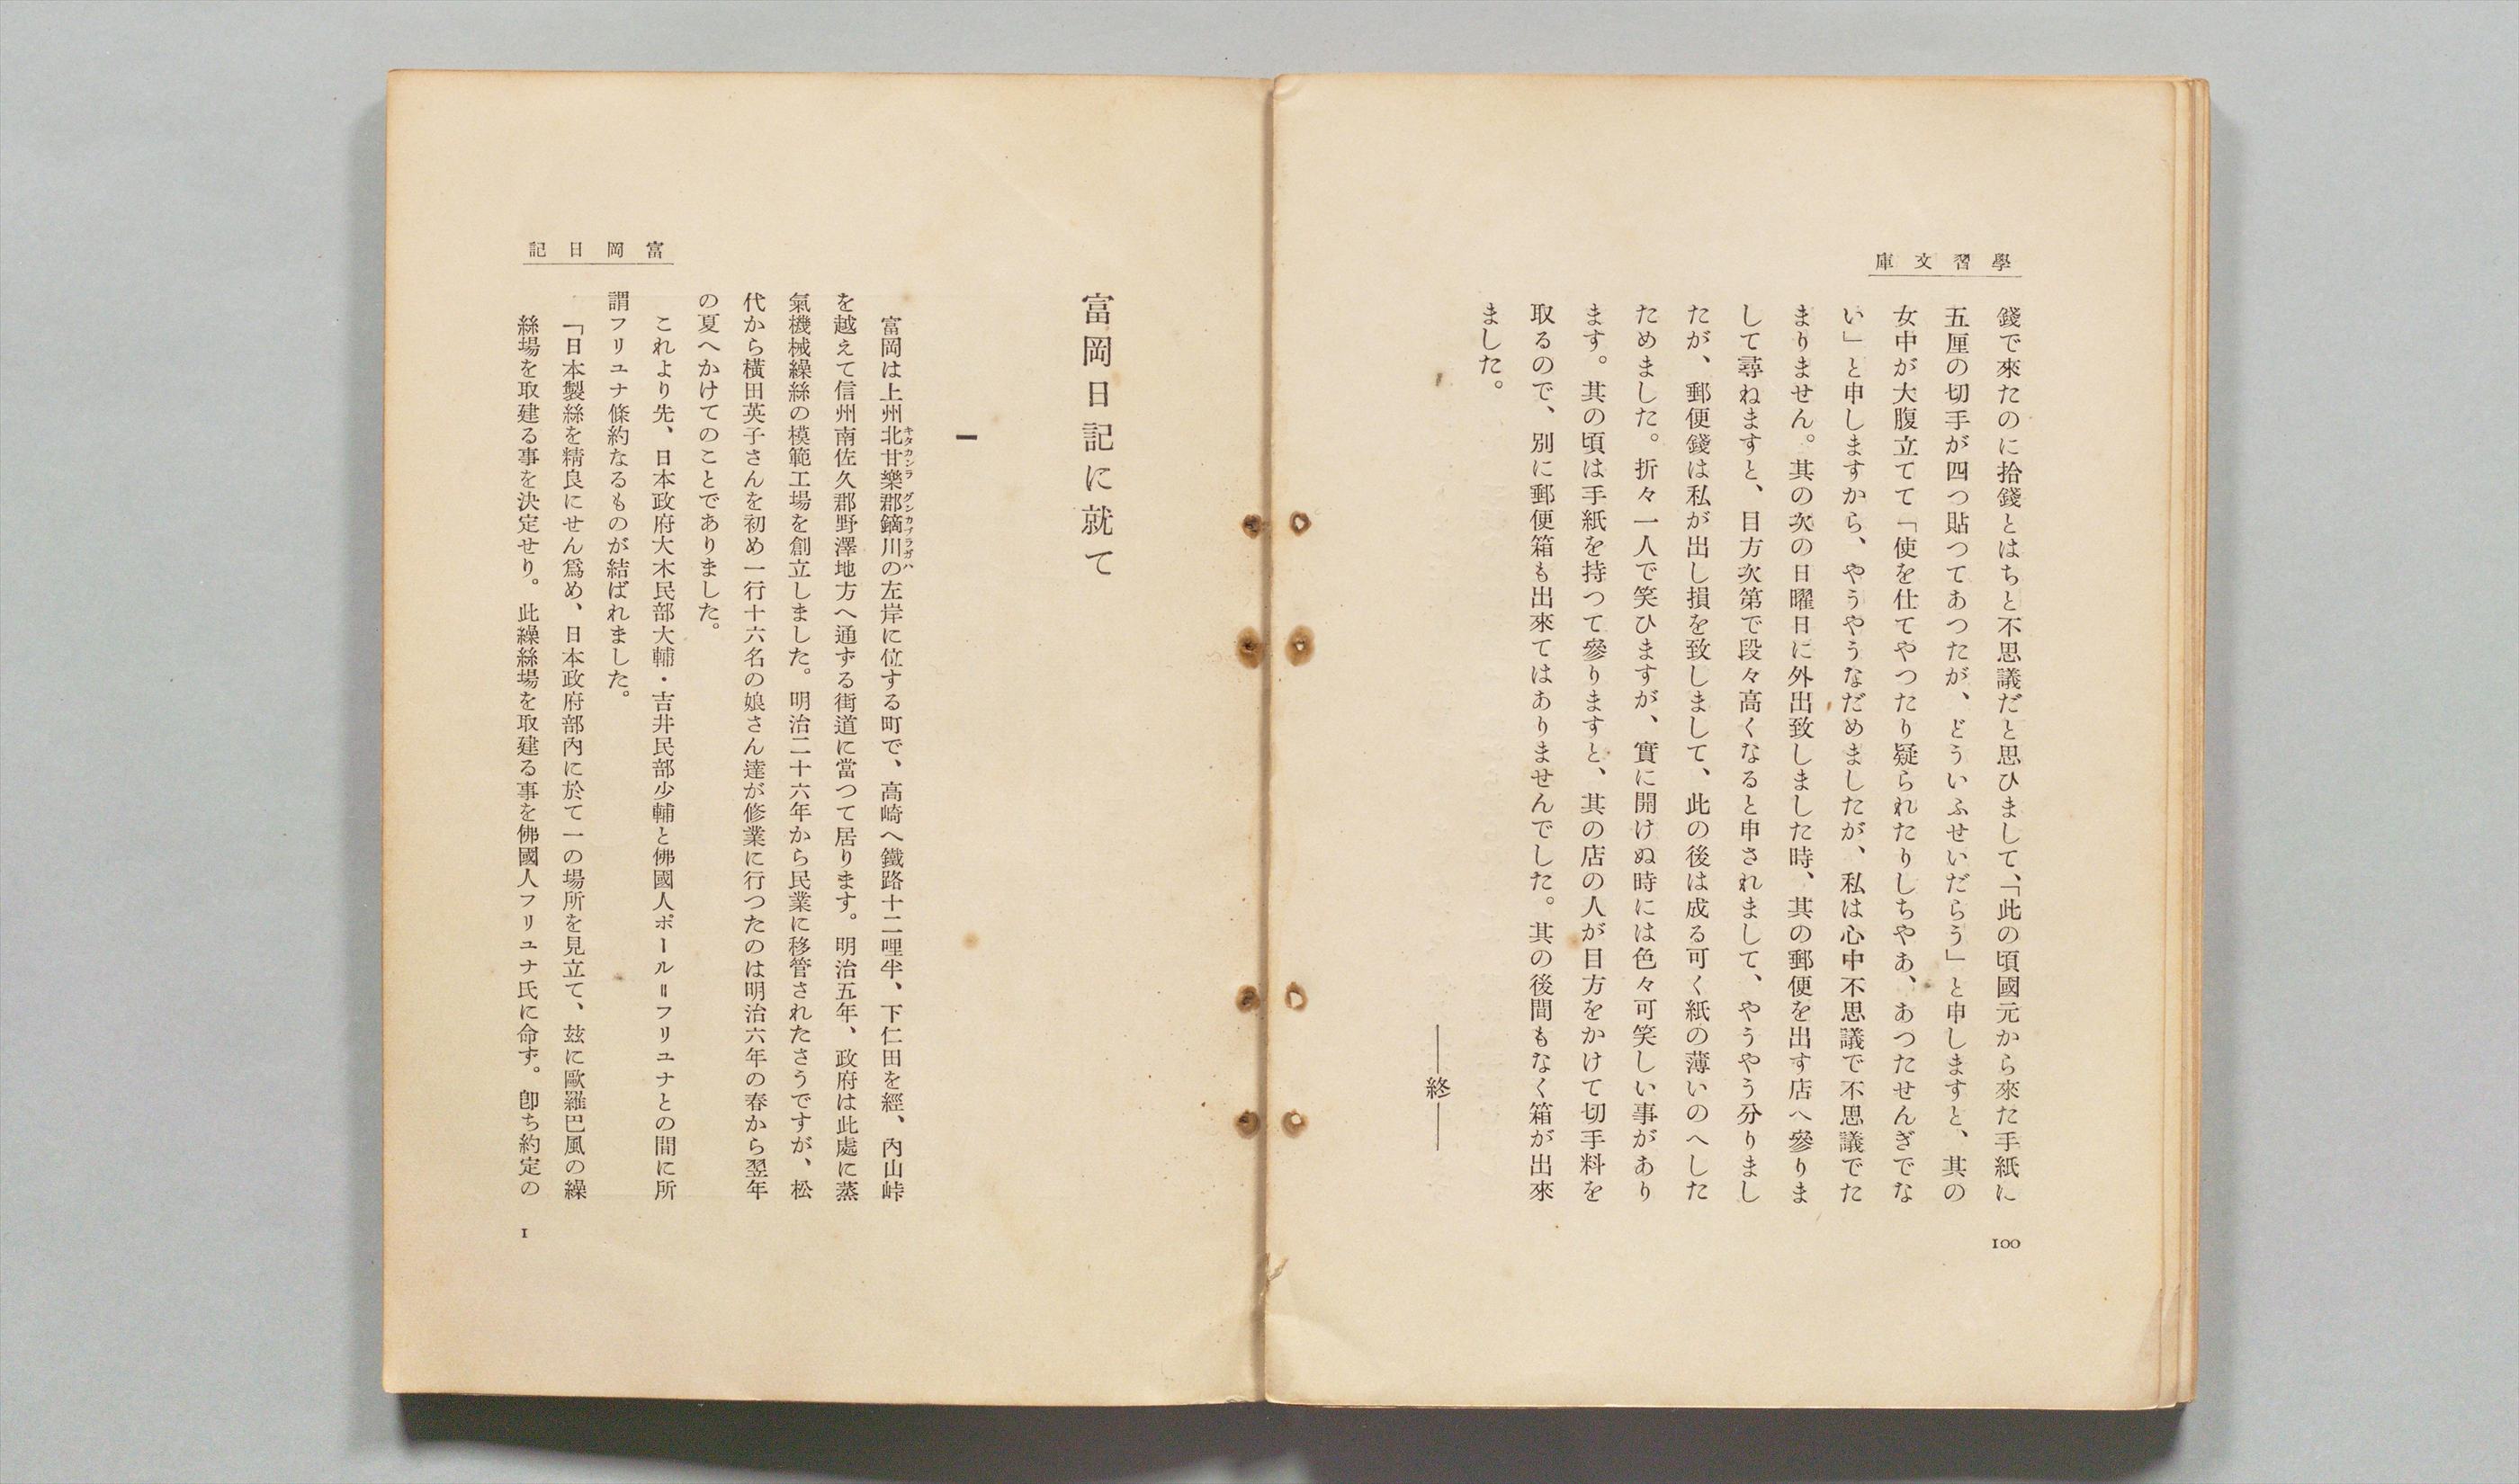 學習文庫
錢で來たのに拾錢とはちと不思議だと思ひまして、「此の頃國元から來た手紙に
五厘の切手が四つ貼つてあつたが、どういふせいだらう」と申しますと、其の
女中が大腹立てて「使を仕てやつたり疑られたりしちやあ、あつたせんぎでな
い」と申しますから、やうやうなだめましたが、私は心中不思議で不思議でた
まりません。其の次の日曜日に外出致しました時、其の郵便を出す店へ參りま
して尋ねますと、目方次第で段々高くなると申されまして、やうやう分りまし
たが、郵便錢は私が出し損を致しまして、此の後は成る可く紙の薄いのへした
ためました。折々一人で笑ひますが、實に開けぬ時には色々可笑しい事があり
ます。其の頃は手紙を持つて參りますと、其の店の人が目方をかけて切手料を
取るので、別に郵便箱も出來てはありませんでした。其の後間もなく箱が出來
ました。
――終――
100
富岡日記
富岡日記に就て
一
富岡は上州北甘樂郡鏑川の左岸に位する町で、高崎へ鐵路十二哩半、下仁田を經、內山峠
キタカンラ グンカブラガハ
を越えて信州南佐久郡野澤地方へ通ずる街道に當つて居ります。明治五年、政府は此處に蒸
氣機械繰絲の模範工場を創立しました。明治二十六年から民業に移管されたさうですが、松
代から橫田英子さんを初め一行十六名の娘さん達が修業に行つたのは明治六年の春から翌年
の夏へかけてのことでありました。
これより先、日本政府大木民部大輔・吉井民部少輔と佛國人ポール＝フリユナとの間に所
謂フリユナ條約なるものが結ばれました。
「日本製絲を精良にせん爲め、日本政府部內に於て一の場所を見立て、玆に歐羅巴風の繰
絲場を取建る事を決定せり。此繰絲場を取建る事を佛國人フリユナ氏に命ず。卽ち約定の
1